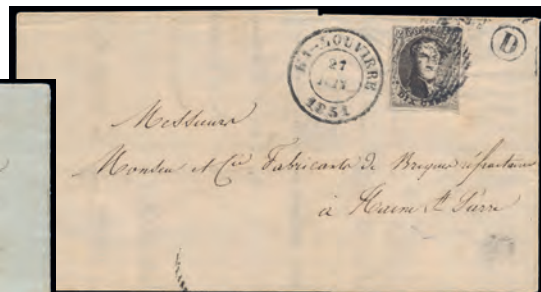 LA-LOUVIERE
27
1851
D
DIX CENTS
Messieurs
Monseu et Cie Fabricants de Briques réfractaires
à Haine St Pierre